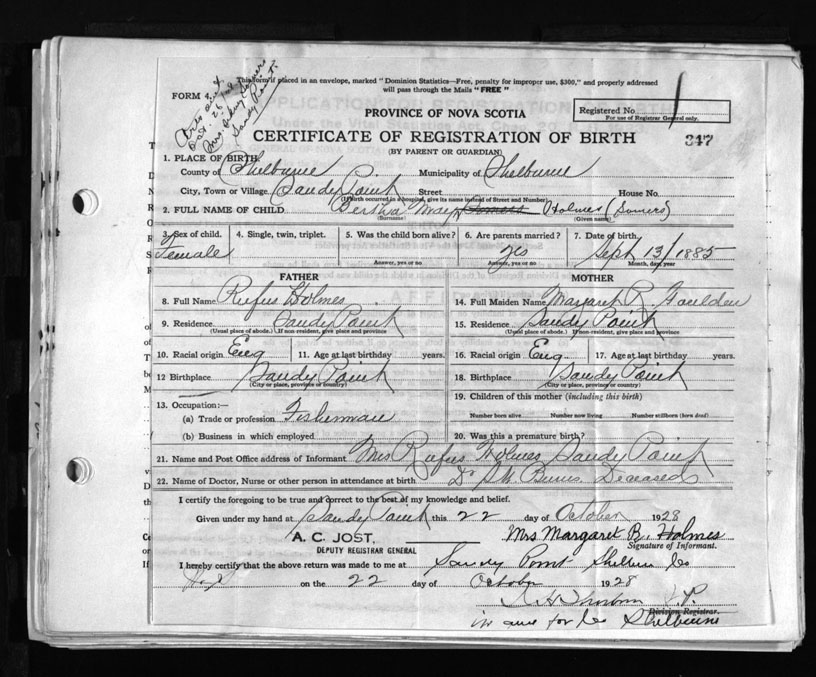 This form if placed in an envelope, marked "Dominion Statistics—Free, penalty for improper use, $300," and properly addressed
will pass through the Mails "FREE"
FORM 4.
Oct. 26
Sandy Point.
Registered No.
For use of Registrar General only.
PROVINCE OF NOVA SCOTIA
CERTIFICATE OF REGISTRATION OF BIRTH
347
(BY PARENT OR GUARDIAN)
1. PLACE OF BIRTH
County of Shelburne Municipality of Shelburne
City, Town or Village Sandy Point Street House No.
(If birth occurred in a hospital, give its name instead of Street and Number)
2. FULL NAME OF CHILD Bertha May Holmes (Somers)
(Surname) (Given name)
3. Sex of child. 4. Single, twin, triplet. 5. Was the child born alive? 6. Are parents married? 7. Date of birth.
Female yes Sept 13/1885
Answer, yes or no Answer, yes or no Month, day, year
FATHER MOTHER
8. Full Name Rufus Holmes 14. Full Maiden Name Margaret R. Goulden
9. Residence Sandy Point 15. Residence Sandy Point
(Usual place of abode.) If non-resident, give place and province (Usual place of abode.) If non-resident, give place and province
10. Racial origin Eng 11. Age at last birthday years. 16. Racial origin Eng 17. Age at last birthday years.
12 Birthplace Sandy Point 18. Birthplace Sandy Point
(City or place, province or country) (City or place, province or country)
13. Occupation:— 19. Children of this mother (including this birth)
(a) Trade or profession Fisherman Number born alive Number now living Number stillborn (born dead)
(b) Business in which employed 20. Was this a premature birth?
21. Name and Post Office address of Informant Mrs Rufus Holmes Sandy Point
22. Name of Doctor, Nurse or other person in attendance at birth Dr Burns Deceased
I certify the foregoing to be true and correct to the best of my knowledge and belief.
Given under my hand at Sandy Point this 22 day of October 1928
A. C. JOST, Mrs Margaret R. Holmes
DEPUTY REGISTRAR GENERAL Signature of Informant.
I hereby certify that the above return was made to me at Sandy Point Shelburne Co
on the 22 day of October 1928
J.P.
Division Registrar.
for Co Shelburne